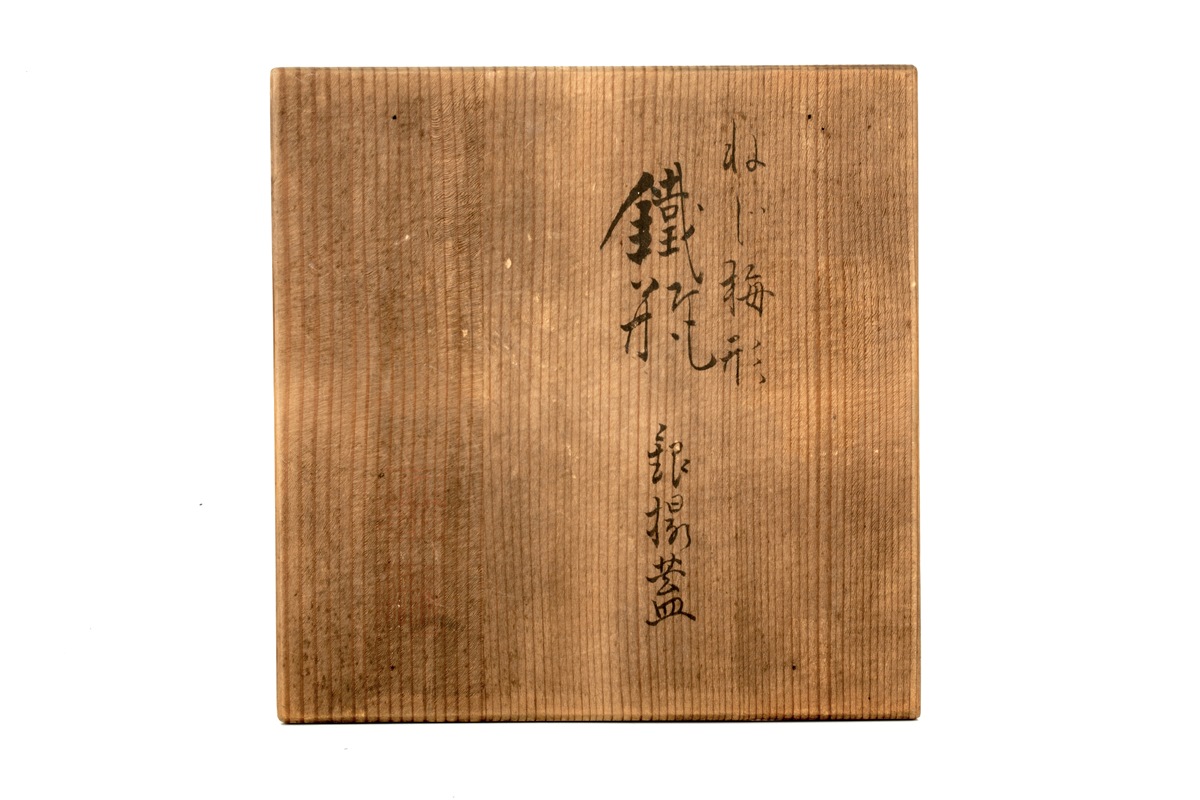 ねじ梅形
鐵瓶
銀撮蓋